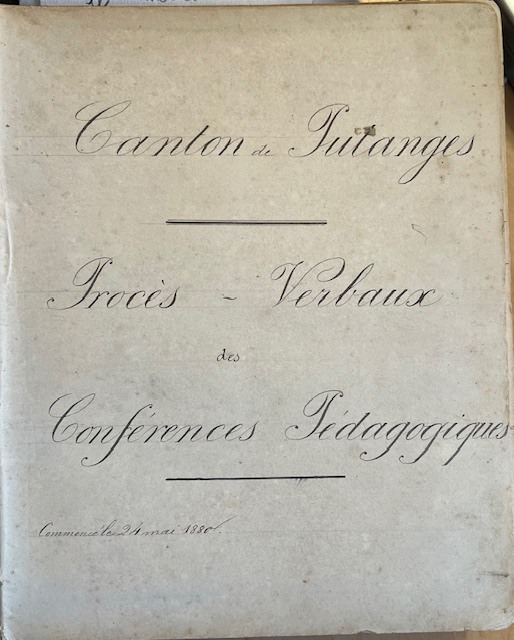 Canton de Putanges
Procès - Verbaux
des
Conférences Pédagogiques
Commencé le 24 mai 1880.